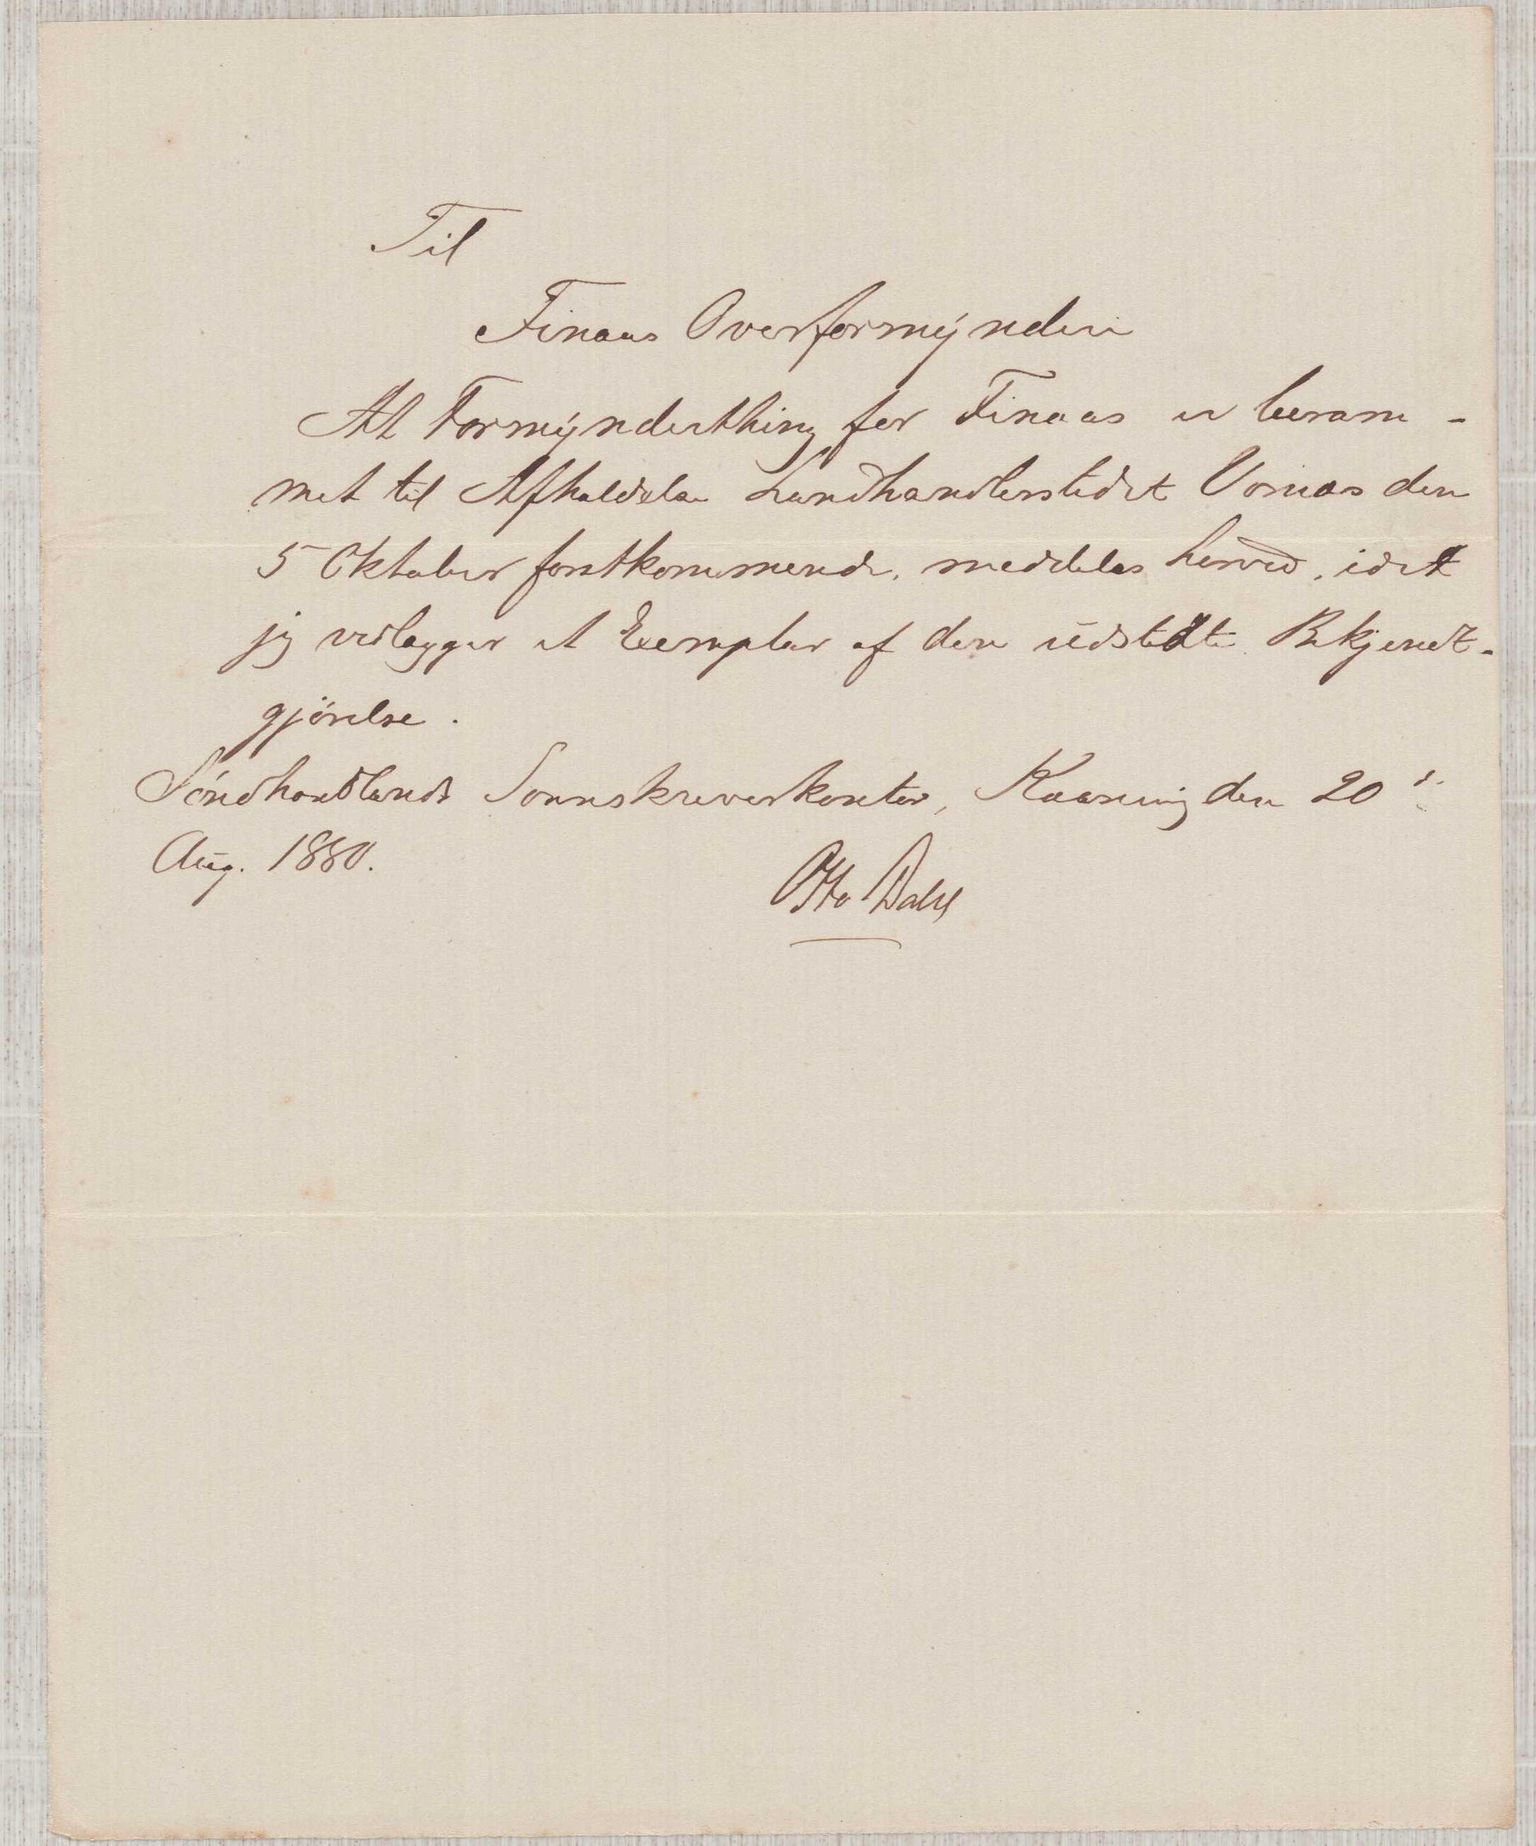 Til
Finaas Overformynderi
At Formynderthing for Finaas er beram-
met til Afholdelse Landhandlerstedet Vornæs den
5 Oktober førstkommende, meddeles herved, idet
jeg vedlægger et Exemplar af den udstedte Bekjendt-
gjørelse.
Søndhordlands Sorenskriverkontor, den 20
Aug. 1880.
Otto Dahl